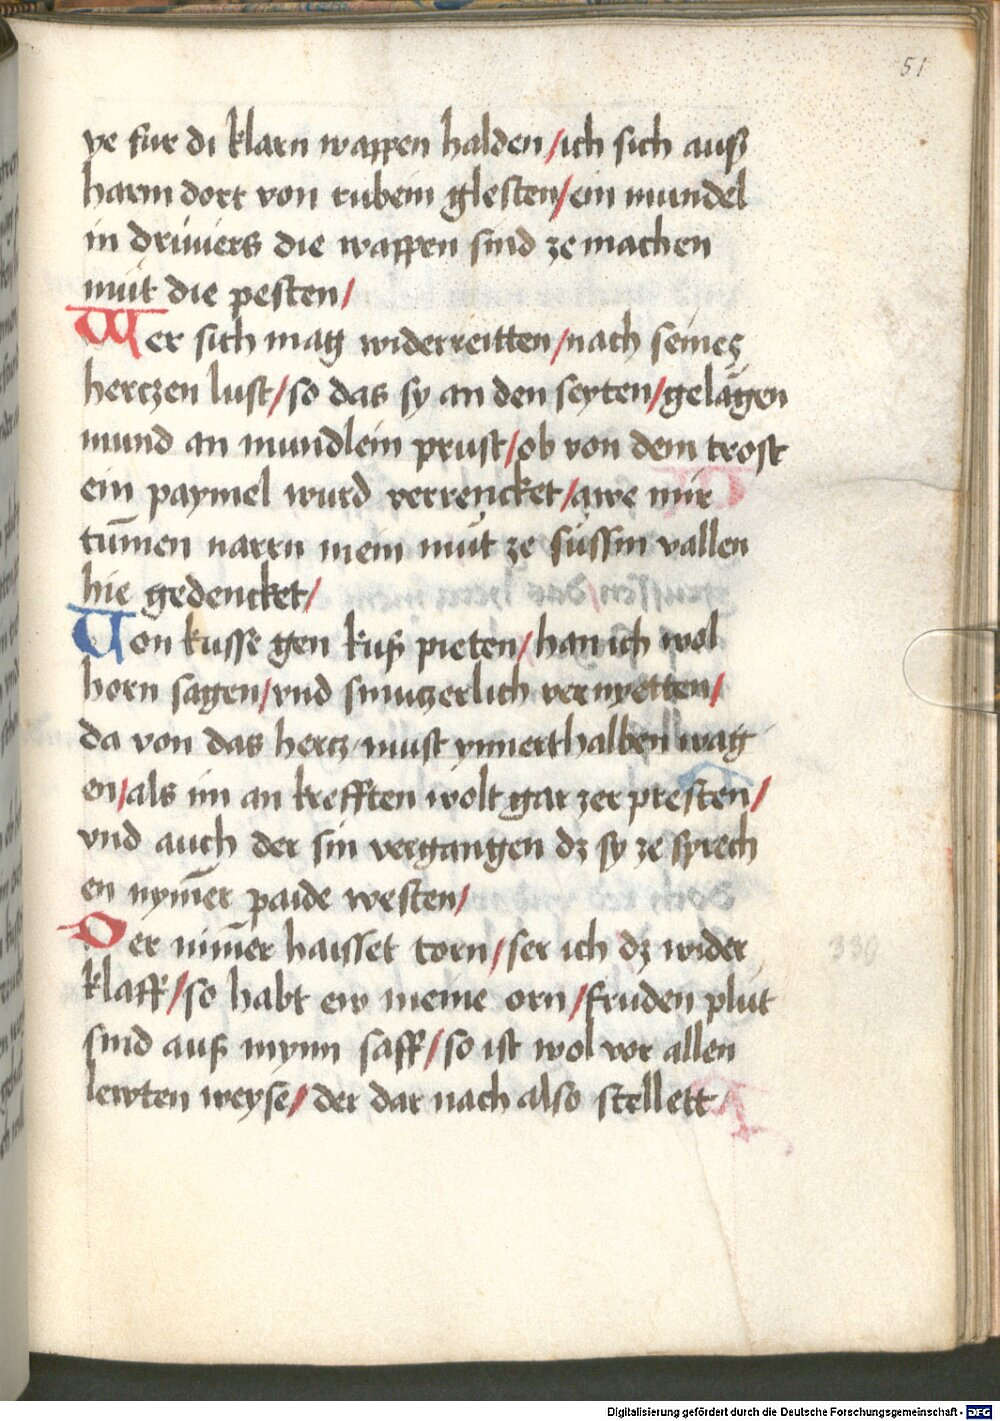 51
ye fur di klarn wappen halden / ich sich auß
harm dort von rubein glesten / ein mundel
in driuiers die wappen sind ze machen
mut die pesten /
Wer sich mag widerreitten / nach seinez
hertzen lust / so das sy an den seyten / gelagen
mund an mundlein prust / ob von dem trost
ein paymel wurd verrencket / awe mir
tumen narrn mein mut ze sussin vallen
hie gedencket /
Von kusse gen kuß pieten / han ich wol
horn sagen / vnd smutzerlich vernyetten /
da von das hertz must ynnerthalben wag
en / als im an krefften wolt gar zer presten /
vnd auch der sin vergangen dz sy ze sprech
en nymer paide westen /
Der nimer haisset torn / ser ich dz wider
klaff / so habt ew meine orn / fruden plut
sind auß mynn saff / so ist wol vor allen
lewten weyse / der dar nach also stellett
330
Digitalisierung gefördert durch die Deutsche Forschungsgemeinschaft - DFG